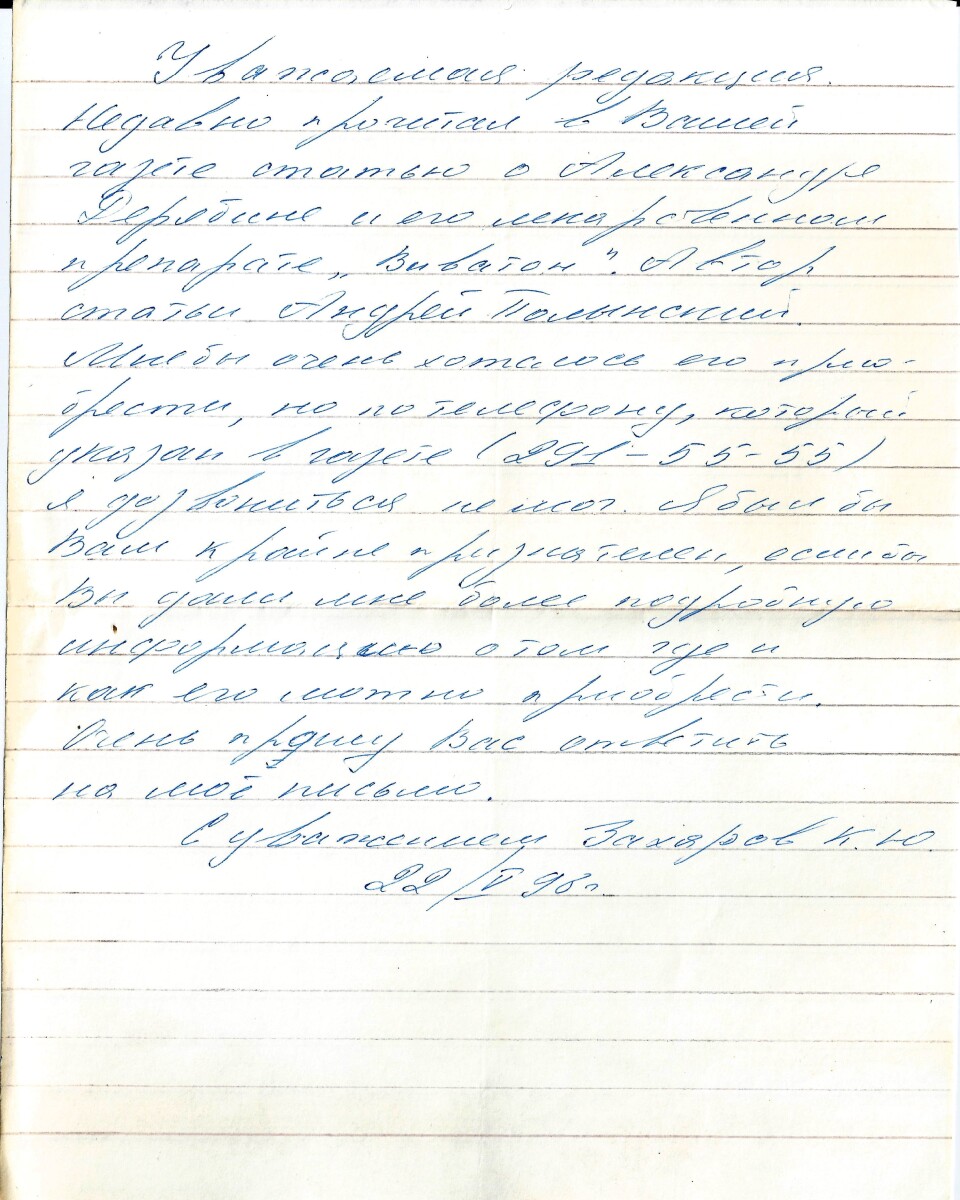 Уважаемая редакция.
Недавно прочитал в Вашей
газете статью о Александре
Дерябине и его лекарственном
препарате „Виватон". Автор
статьи Андрей Полынский.
Мне бы очень хотелось его прио-
брести, но по телефону, который
указан в газете (291-55-55)
я дозвониться не мог. Я был бы
Вам крайне признателен, если бы
Вы дали мне более подробную
информацию о том где и
как его можно приобрести.
Очень прошу Вас ответить
на моё письмо.
С уважением Захаров К.Ю.
22/V 98г.